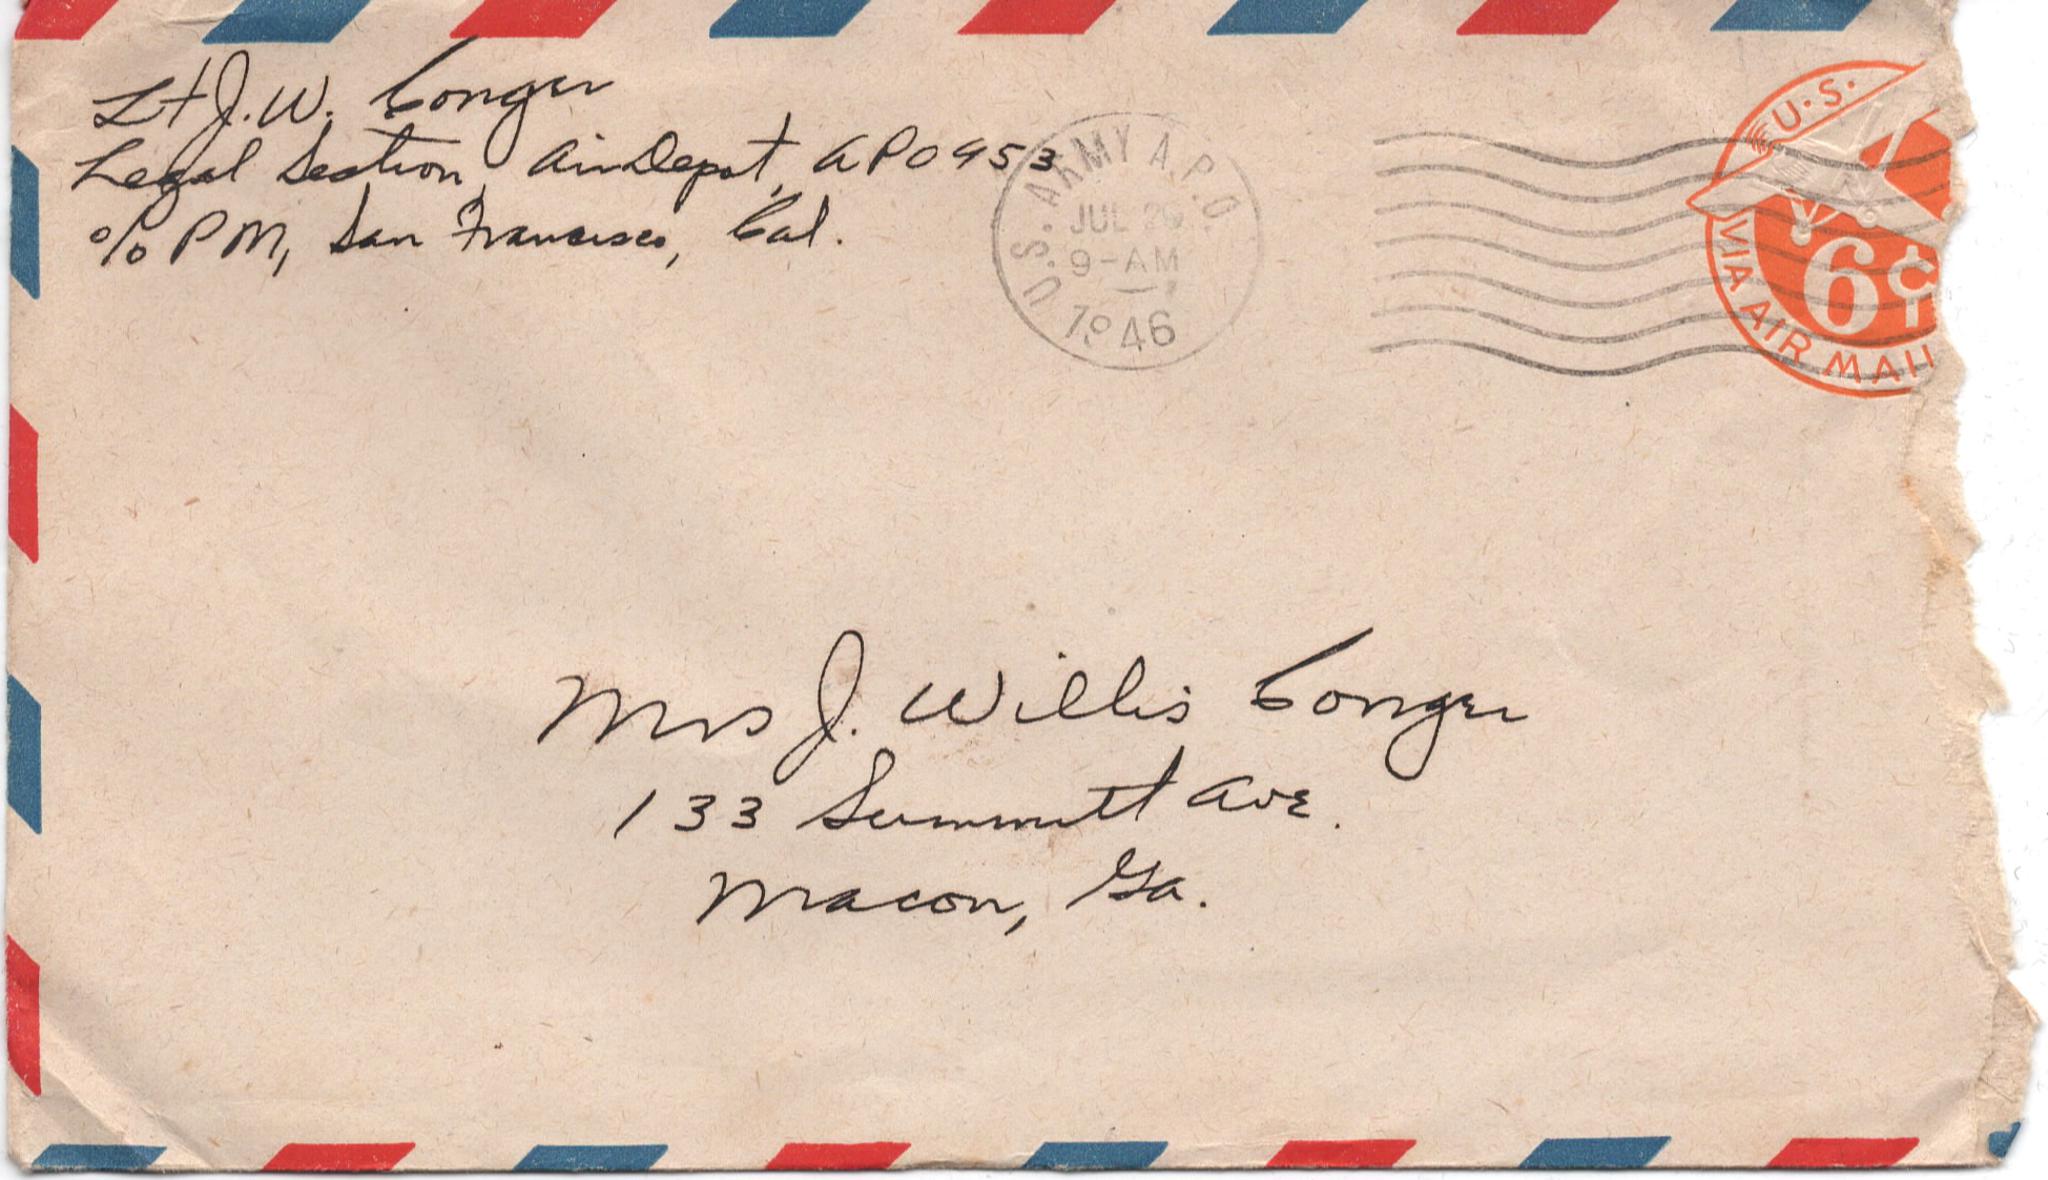 Lt J. W. Conger
Legal Section, Air Depot, APO 953
c/o PM, San Francisco, Cal.
U.S. ARMY A.P.O.
JUL
9-AM
1946
U.S.
6¢
VIA AIR MAIL
Mrs J. Willis Conger
133 Summitt Ave.
Macon, Ga.